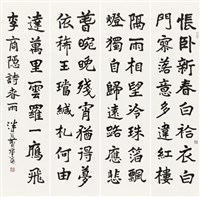 悵臥新春白袷衣白
門寥落意多違紅樓
隔雨相望冷珠箔飄
燈獨自歸遠路應悲
春晼晚殘宵猶得夢
依稀玉璫緘札何由
達萬里雲羅一鴈飛
李商隱詩春雨